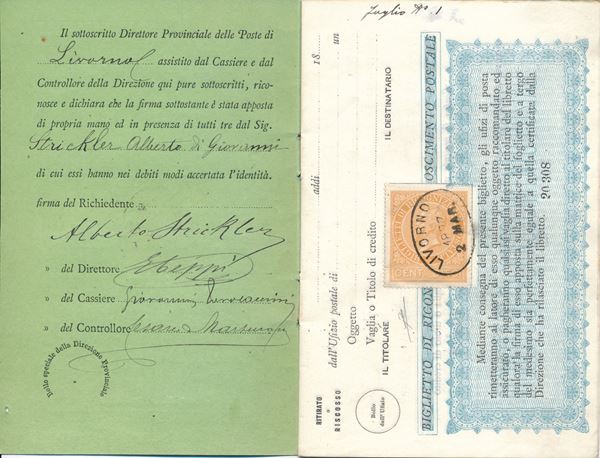 Il sottoscritto Direttore Provinciale delle Poste di
Livorno assistito dal Cassiere e dal
Controllore della Direzione qui pure sottoscritti, rico-
nosce e dichiara che la firma sottostante è stata apposta
di propria mano ed in presenza di tutti tre dal Sig.
Strickler Alberto di Giovanni
di cui essi hanno nei debiti modi accertata l'identità.
firma del Richiedente
Alberto Strickler
» del Direttore
» del Cassiere Giovanni
» del Controllore
Bollo speciale della Direzione Provinciale
Foglio N.º 1
RITIRATO
o
RISCOSSO
dall'Ufizio postale di addì 18 un
Oggetto
Vaglia o Titolo di credito
IL TITOLARE IL DESTINATARIO
Bollo
dell'Ufizio
CENT
LIVORNO
2 MAR.
BIGLIETTO DI RICONOSCIMENTO POSTALE
Mediante consegna del presente biglietto, gli ufizi di posta
rimetteranno al latore di esso qualunque oggetto raccomandato ed
assicurato, o pagheranno qualsisia vaglia diretto al titolare del libretto
qualora la firma di esso apposta sulla matrice del foglietto e a tergo
del medesimo sia perfettamente eguale a quella certificata dalla
Direzione che ha rilasciato il libretto. 20308